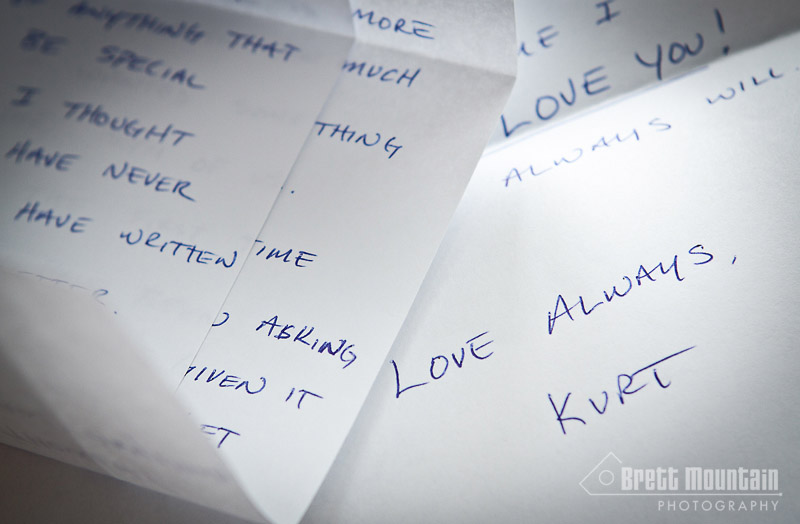 ANYTHING THAT
BE SPECIAL
I THOUGHT
HAVE NEVER
HAVE WRITTEN
MORE
MUCH
THING
TIME
ASKING
GIVEN IT
ET
I
LOVE YOU!
ALWAYS WILL.
LOVE ALWAYS,
KURT
Brett Mountain
PHOTOGRAPHY